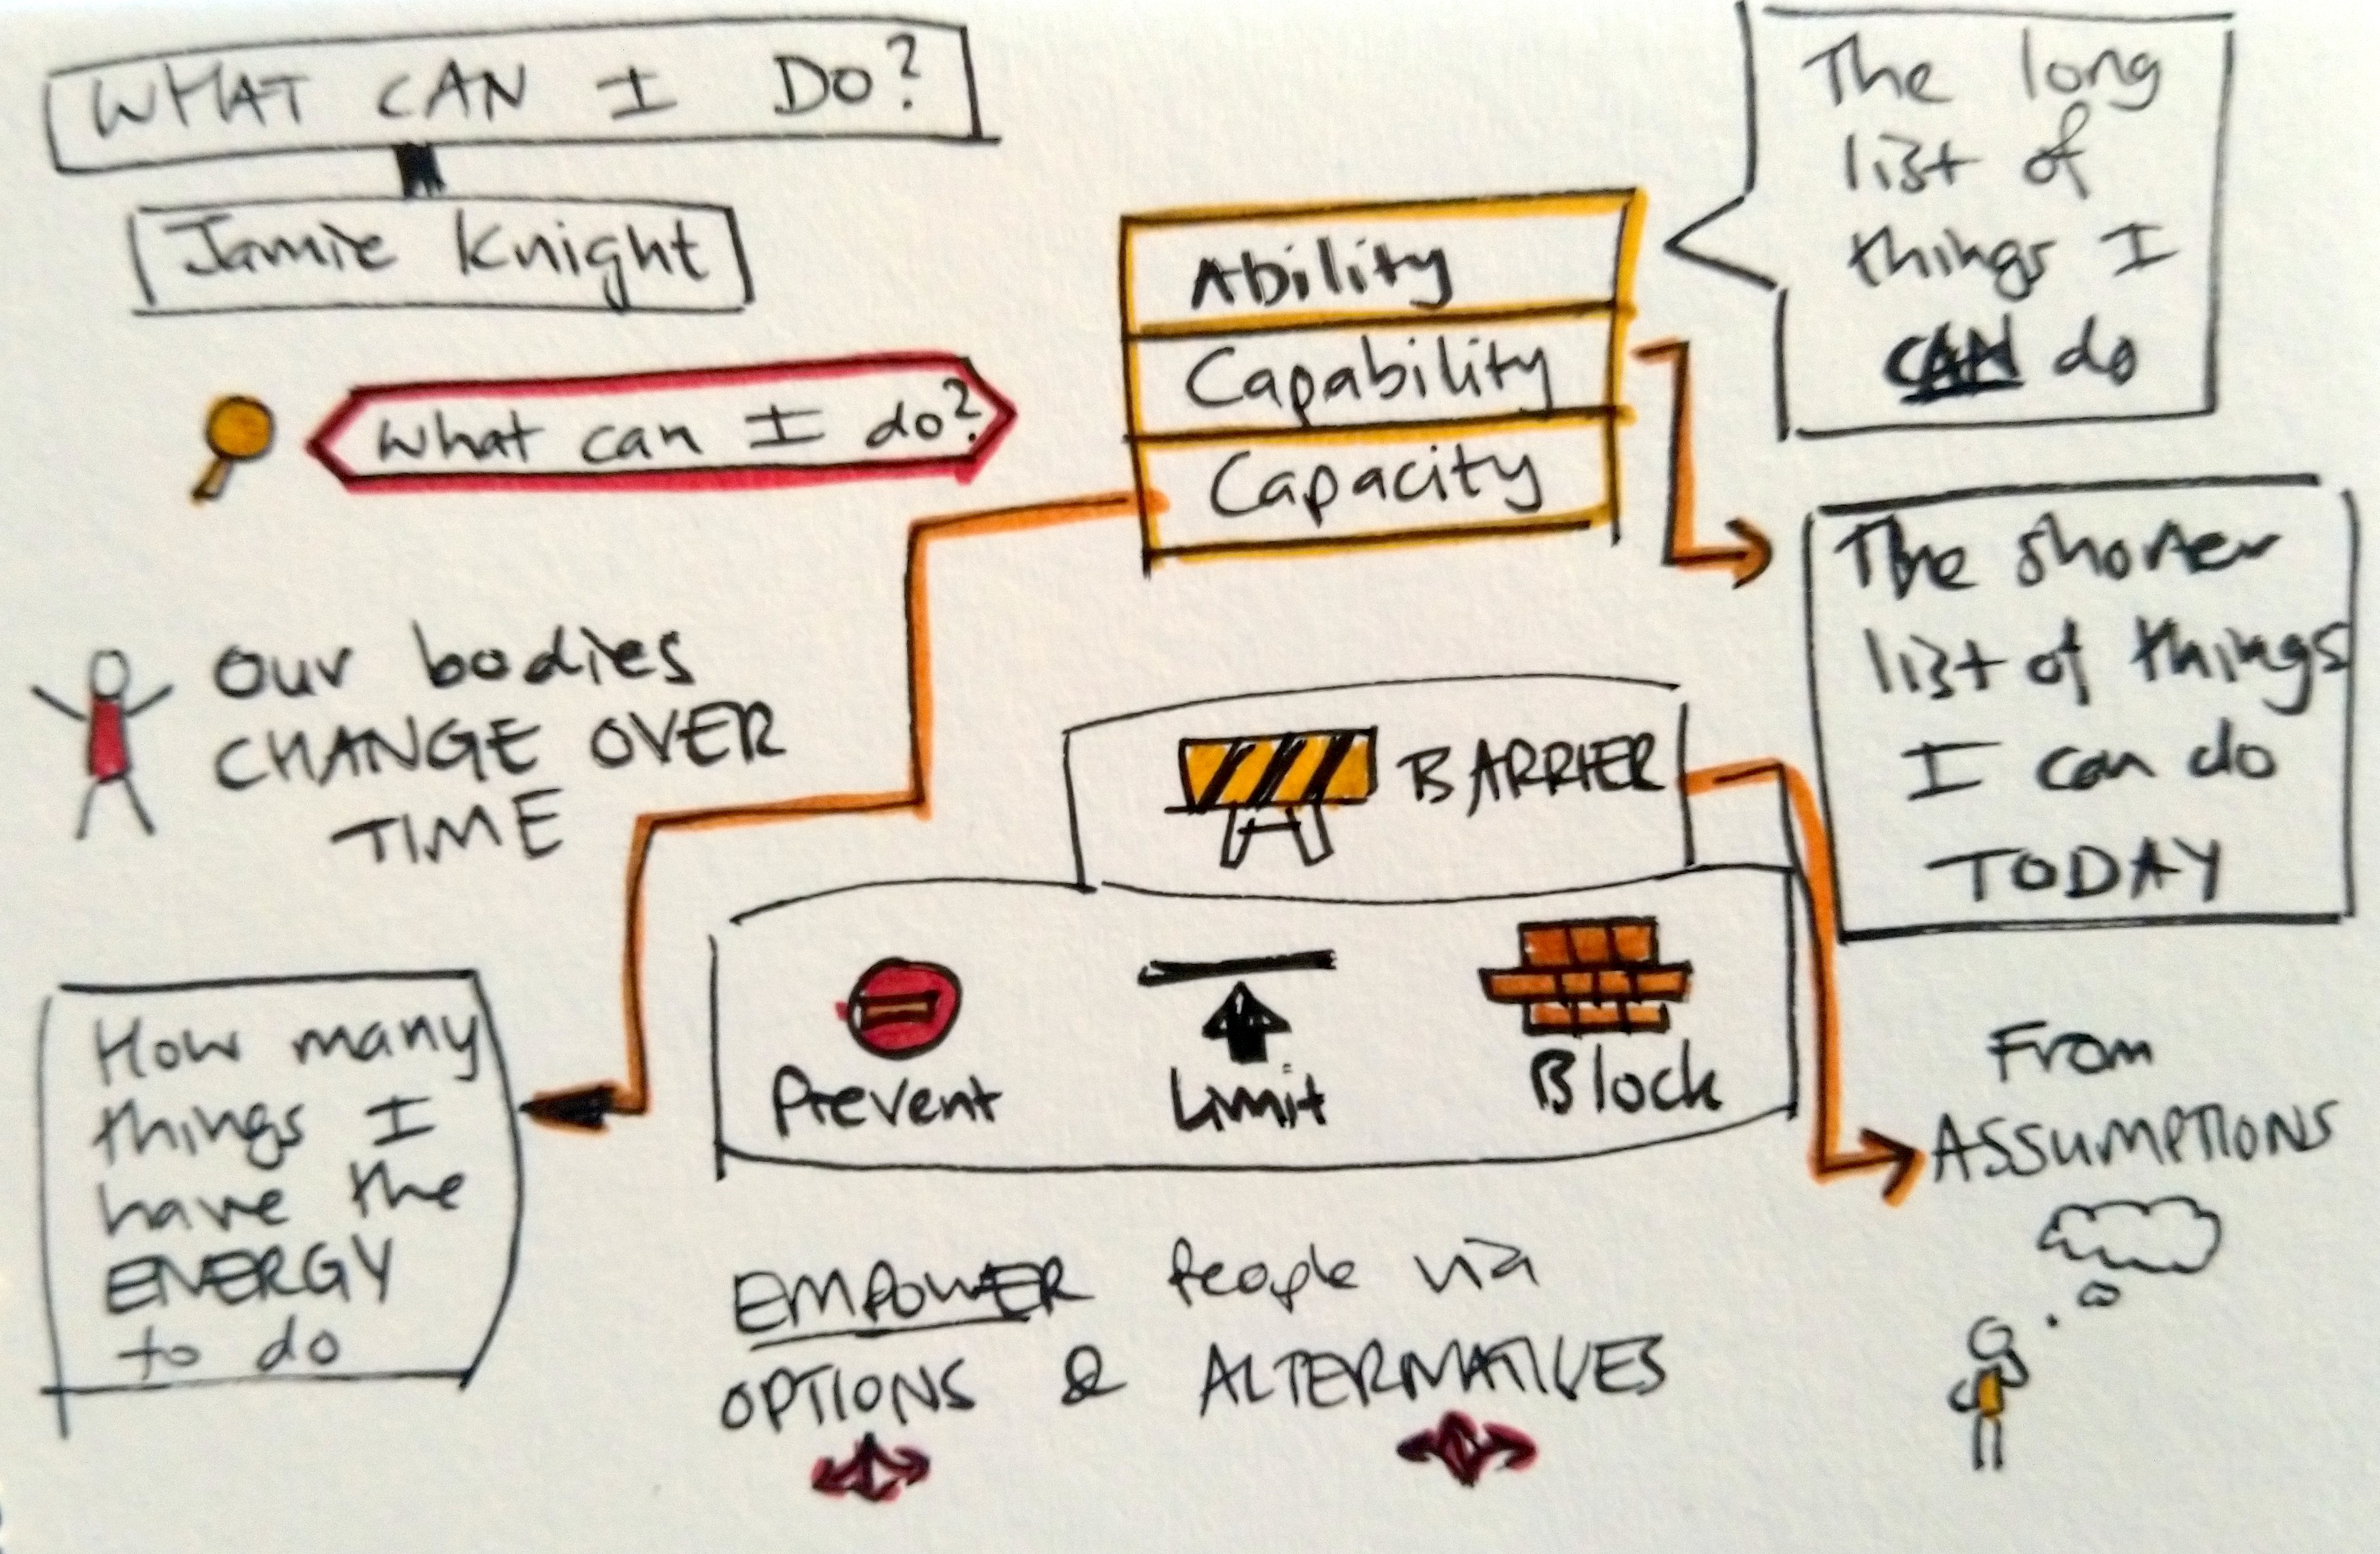 WHAT CAN I DO?
Jamie Knight
What can I do?
Ability
Capability
Capacity
The long
list of
things I
CAN do
The shorter
list of things
I can do
TODAY
Our bodies
CHANGE OVER
TIME
BARRIER
Prevent
Limit
Block
How many
things I
have the
ENERGY
to do
From
ASSUMPTIONS
EMPOWER People via
OPTIONS & ALTERNATIVES